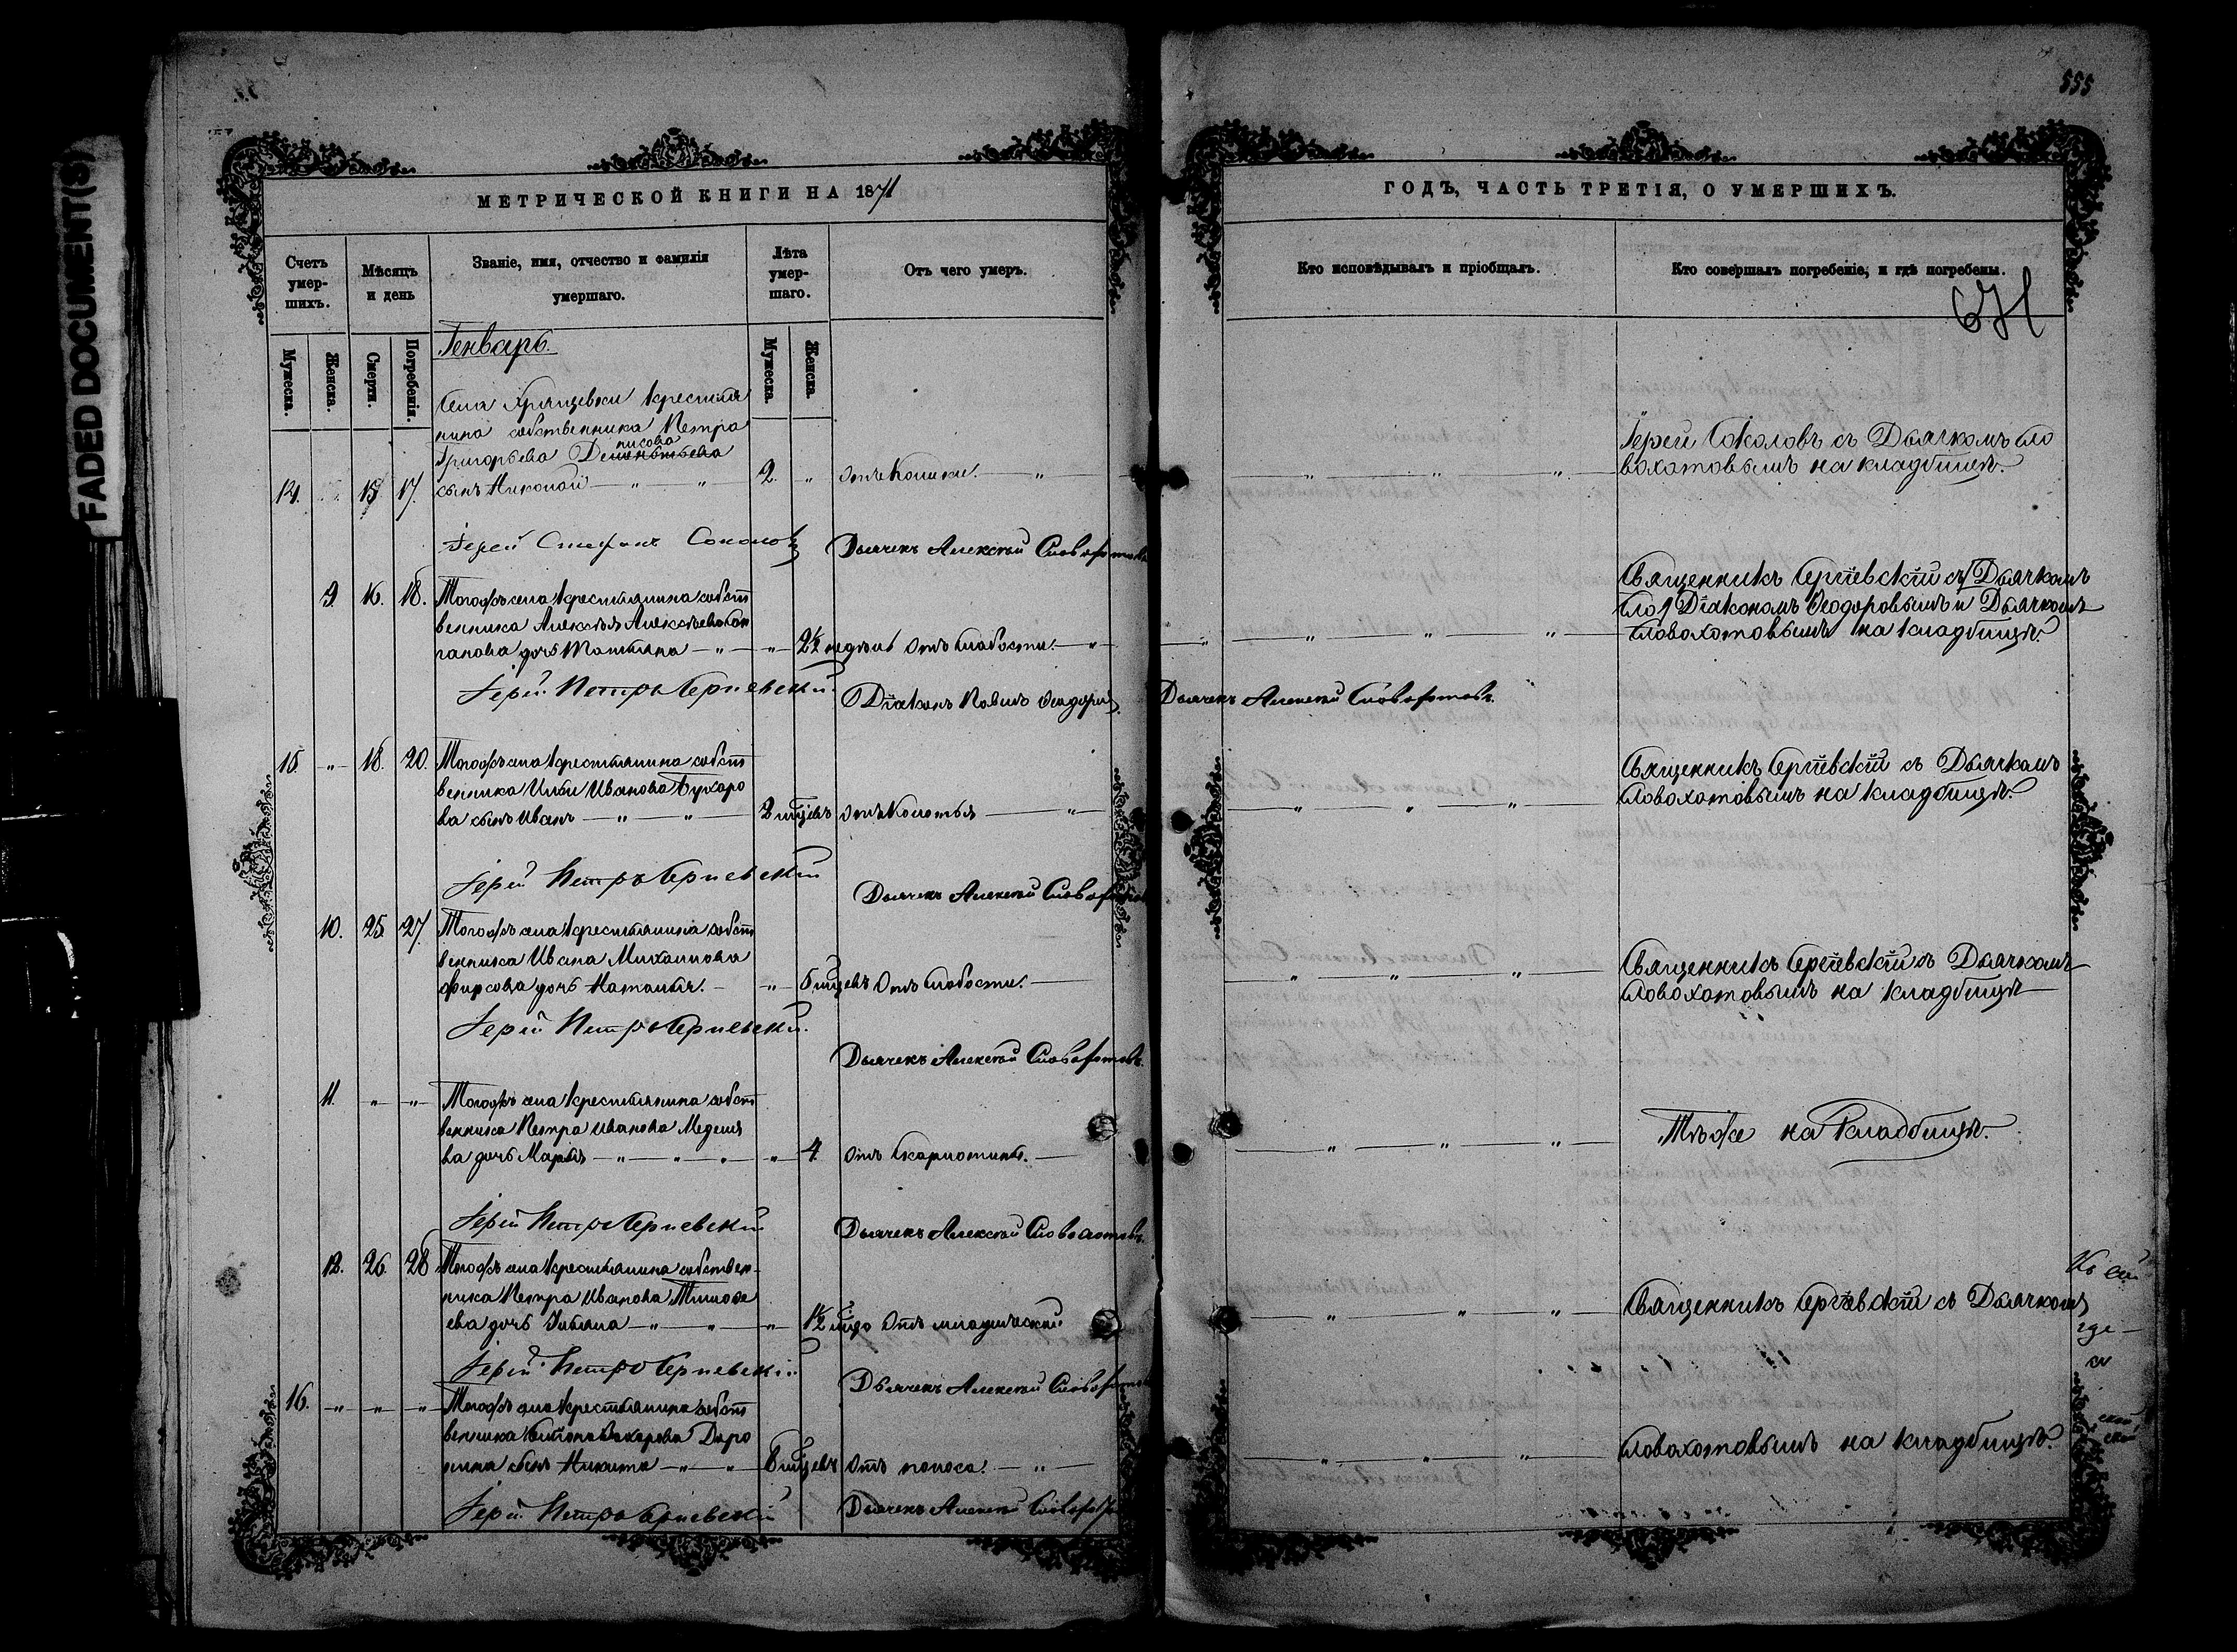 555
FADED DOCUMENT(S)
МЕТРИЧЕСКОЙ КНИГИ НА 1871
ГОДЪ, ЧАСТЬ ТРЕТІЯ, О УМЕРШИХЪ.
Счетъ умер-
шихъ.
Мѣсяцъ
и день
Званіе, имя, отчество и фамилія
умершаго.
Лѣта
умер-
шаго.
Отъ чего умеръ.
Кто исповѣдывалъ и пріобщалъ.
Кто совершалъ погребеніе, и гдѣ погребены.
Мужеска.
Женска.
Смерти.
Погребенія.
Генварь.
Мужеска.
Женска.
Села Хрящевки крестья
нина собственника Петра
нисова
Григорьева
14. 15 17. сынъ Николай 2. "
Іерей Соколовъ съ Дьячкомъ Сло
вохотовымъ на кладбищѣ.
Іерей Стефанъ Соколовъ Дьячекъ Алексѣй Словохотовъ
9. 16. 18. Тогожъ села крестьянина собст
венника Алексѣя Алексѣева
дочь Татьяна 2½ недѣль отъ слабости.
Священникъ Сергіевскій съ Дьячкомъ
Сло Діакономъ Ѳеодоровымъ и Дьячкомъ
Словохотовымъ на кладбищѣ.
Іерей Петръ Сергіевскій Діаконъ Павелъ Дьячекъ Алексѣй Словохотовъ.
15. " 18. 20. Тогожъ села крестьянина собст
венника Ильи Иванова Бухаро
ва сынъ Иванъ 2 мѣсцевъ отъ колотья
Священникъ Сергіевскій съ Дьячкомъ
Словохотовымъ на кладбищѣ.
Іерей Петръ Сергіевскій Дьячекъ Алексѣй Словохотовъ
10. 25. 27. Тогожъ села крестьянина собст
венника Ивана Михаилова
Фирсова дочь Наталья. " мѣсцевъ отъ слабости.
Священникъ Сергіевскій съ Дьячкомъ
Словохотовымъ на кладбищѣ
Іерей Петръ Сергіевскій.
Дьячекъ Алексѣй Словохотовъ.
11. " " Тогожъ села крестьянина собст
венника Петра Иванова
дочь Марья " 4. отъ скарлотины.
Тѣже на кладбищѣ.
Іерей Петръ Сергіевскій Дьячекъ Алексѣй Словохотовъ.
12. 26. 28 Тогожъ села крестьянина собствен-
ника Петра Иванова Тимофе
ева дочь Ульяна " 1½ отъ младенческой
Священникъ Сергіевскій съ Дьячкомъ
Іерей Петръ Сергіевскій Дьячекъ Алексѣй Словохотовъ
16. " " " Тогожъ села крестьянина собст
венника Захарова Доро
нина сынъ Никита мѣсцевъ отъ поноса.
Словохотовымъ на кладбищѣ.
Іерей Петръ Сергіевскій Дьячекъ Алексѣй Словохотовъ